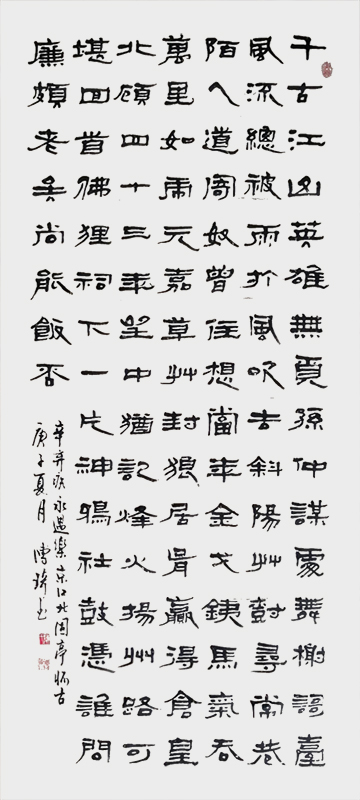 千古江山英雄無覓孫仲謀處舞榭謌臺
風流總被雨打風吹去斜陽艸樹尋常巷
陌人道寄奴曾住想當年金戈銕馬氣吞
萬里如虎元嘉草艸封狼居胥贏得倉皇
北顧四十三年望中猶記烽火揚州路可
堪回首佛狸祠下一片神鴉社鼓憑誰問
廉頗老矣尚能飯否
辛弃疾永遇樂京口北固亭怀古
庚子夏月